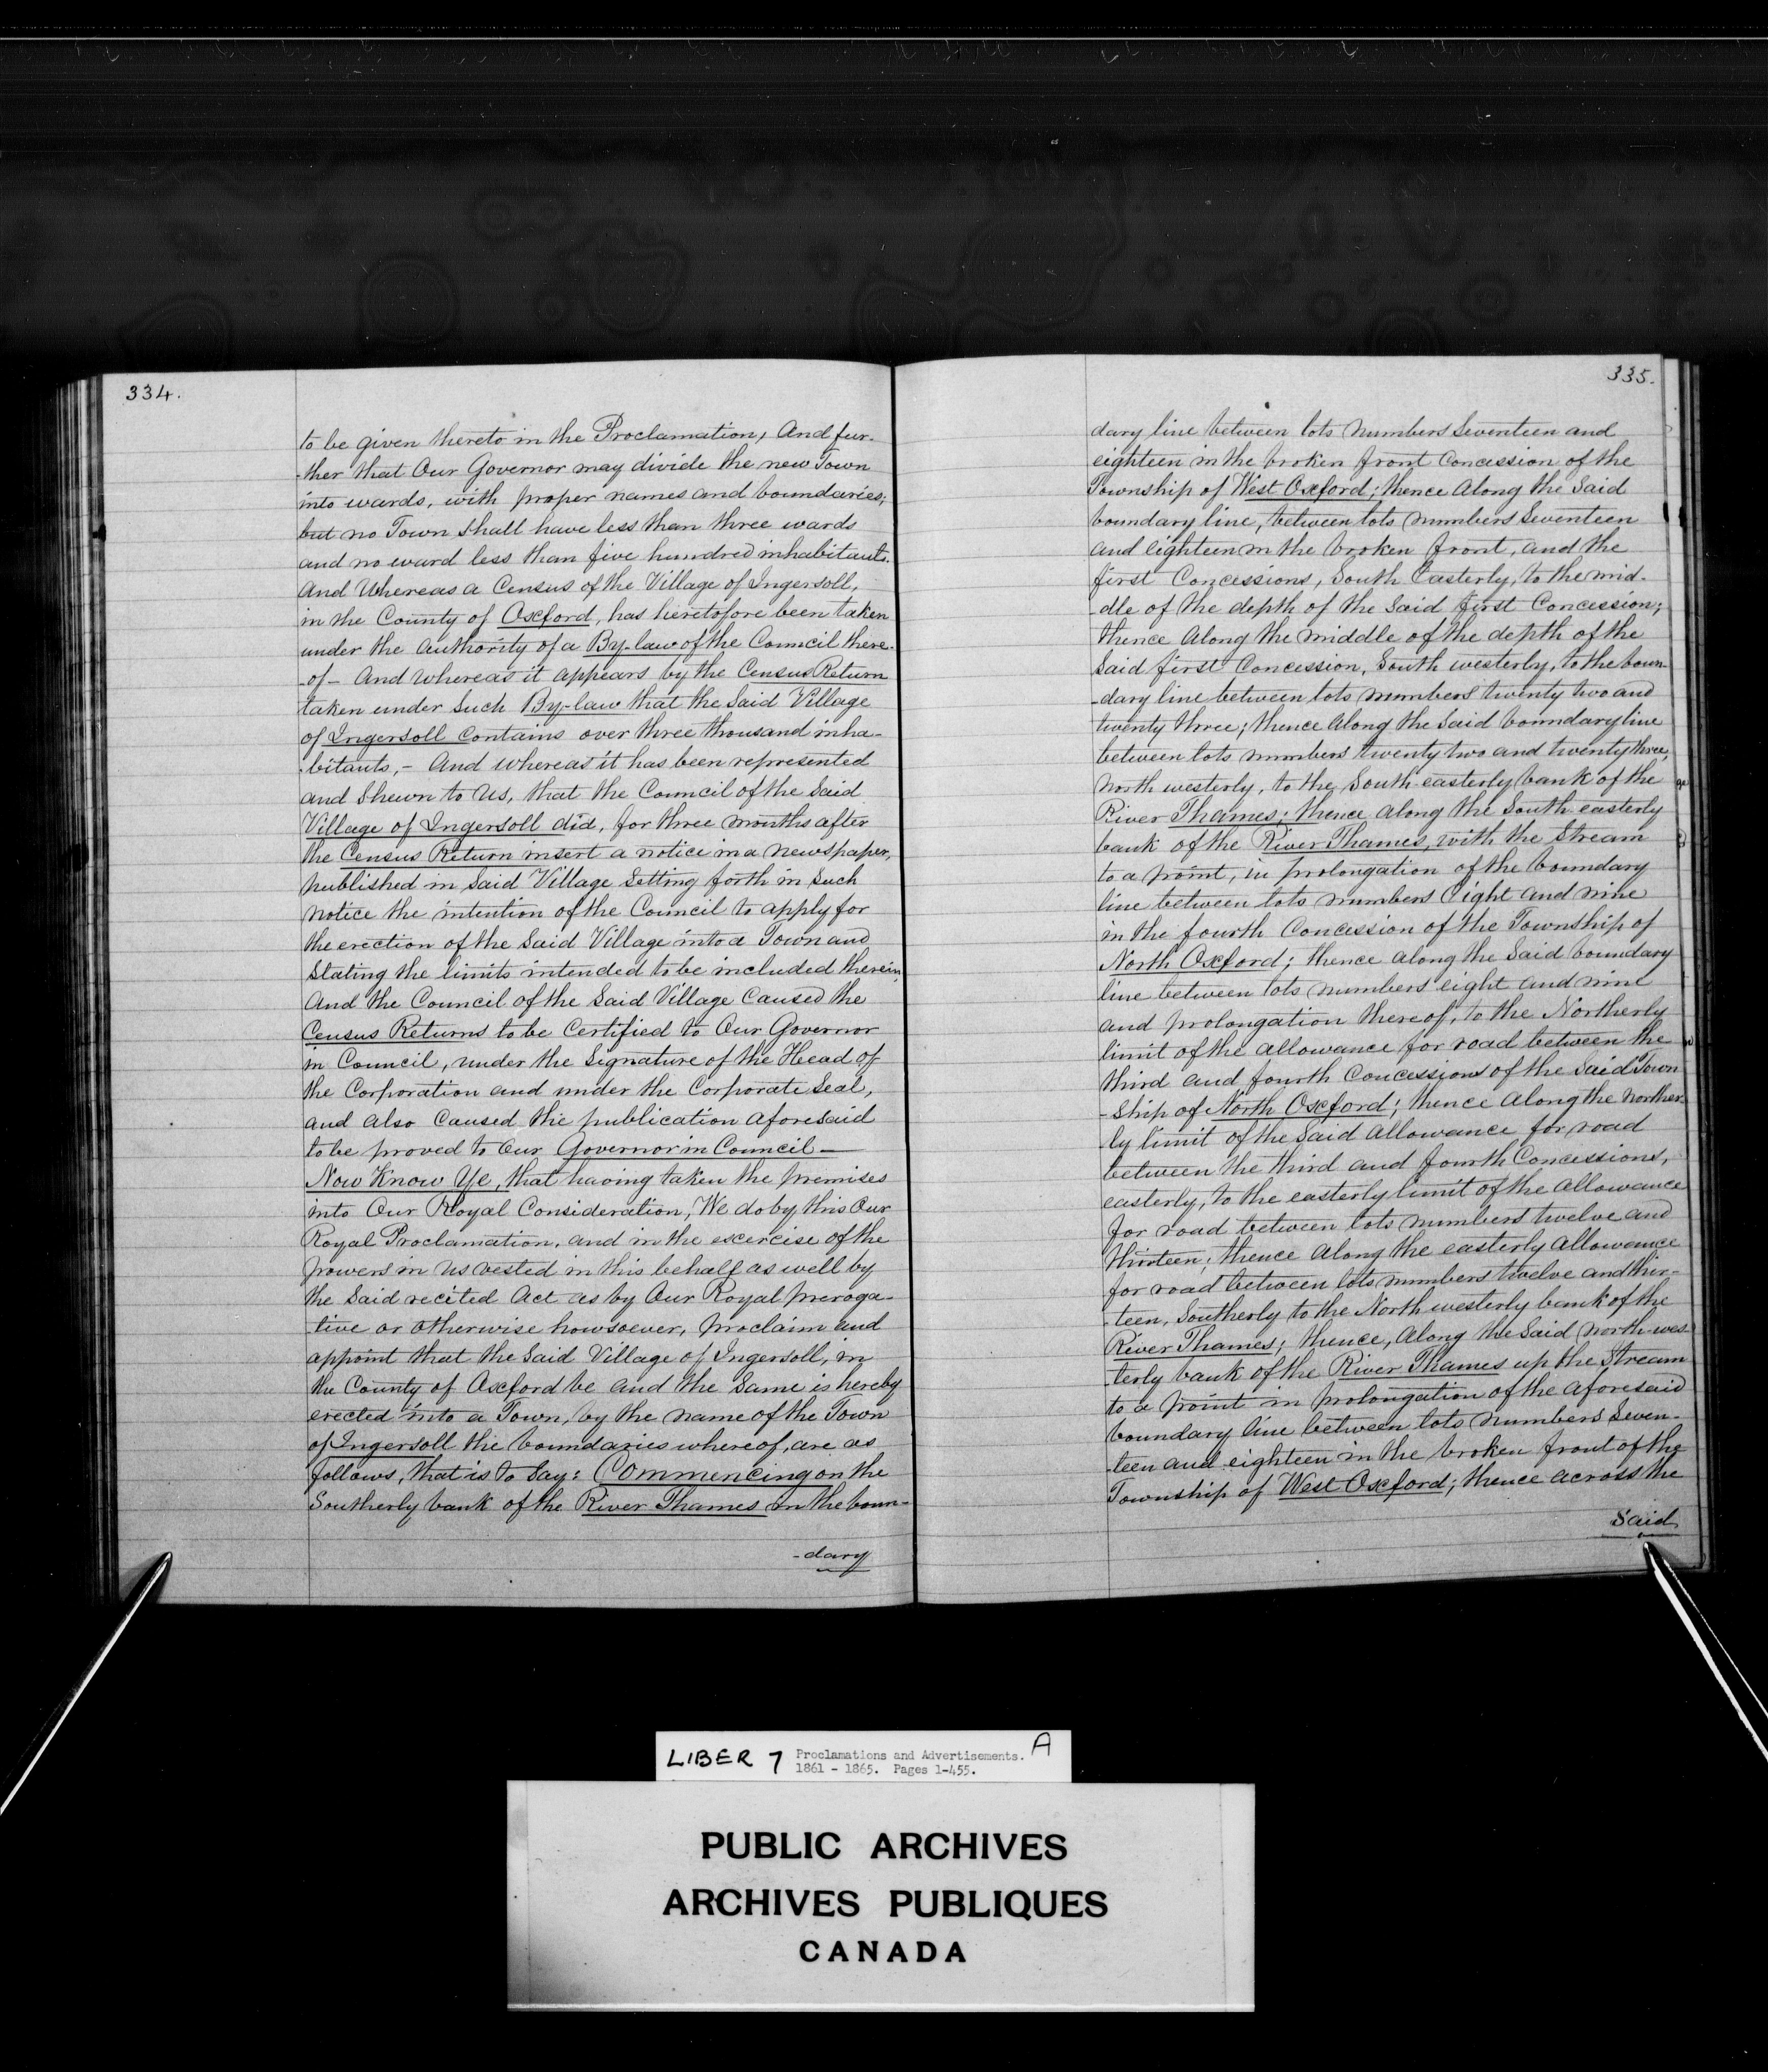 334.
to be given thereto in the Proclamation, And fur-
-ther that Our Governor may divide the new Town
into wards, with proper names and boundaries;
but no Town shall have less than three wards
and no ward less than five hundred inhabitants.
And Whereas a Census of the Village of Ingersoll,
in the County of Oxford, has heretofore been taken
under the Authority of a By-law of the Council there-
-of - And whereas it appears by the Census Return
taken under Such By-law that the Said Village
of Ingersoll Contains over three thousand inha-
-bitants, - And whereas it has been represented
and Shewn to Us, that the Council of the Said
Village of Ingersoll did, for three months after
the Census Return insert a notice in a newspaper,
published in Said Village Setting forth in Such
notice the intention of the Council to apply for
the erection of the Said Village into a Town and
Stating the limits intended to be included therein,
And the Council of the Said Village Caused the
Census Returns to be Certified to Our Governor
in Council, under the Signature of the Head of
the Corporation and under the Corporate Seal,
and also Caused the publication aforesaid
to be proved to Our Governor in Council —
Now Know Ye, that having taken the premises
into Our Royal Consideration, We do by this Our
Royal Proclamation, and in the excercise of the
powers in Us vested in this behalf as well by
the Said recited Act as by Our Royal preroga-
-tive or otherwise howsoever, proclaim and
appoint that the Said Village of Ingersoll, in
the County of Oxford be and the Same is hereby
erected into a Town, by the name of the Town
of Ingersoll the boundaries whereof, are as
follows, that is to Say: Commencing on the
Southerly bank of the River Thames in the boun-
-dary
335.
dary line between lots numbers Seventeen and
eighteen in the broken front Concession of the
Township of West Oxford; thence Along the Said
boundary line, between lots numbers Seventeen
and eighteen in the broken front, and the
first Concessions, South Easterly, to the mid-
-dle of the depth of the Said first Concession;
thence Along the middle of the depth of the
Said first Concession, South westerly, to the boun-
-dary line between lots numbers twenty two and
twenty three; thence Along the Said boundary line
between lots numbers twenty two and twenty three,
North westerly, to the South-easterly bank of the
River Thames; thence along the South-easterly
bank of the River Thames, with the Stream
to a point, in prolongation of the boundary
line between lots numbers Eight and nine
in the fourth Concession of the Township of
North Oxford; thence along the Said boundary
line between lots numbers eight and nine
and prolongation thereof, to the Northerly
limit of the allowance for road between the
third and fourth Concessions of the Said Town
-Ship of North Oxford; thence Along the Norther-
ly limit of the Said Allowance for road
between the third and fourth Concessions,
easterly, to the easterly limit of the Allowance
for road between lots numbers twelve and
thirteen; thence Along the easterly Allowance
for road between lots numbers twelve and thir-
-teen, Southerly to the North westerly bank of the
River Thames; thence, Along the Said North-wes-
-terly bank of the River Thames up the Stream
to a point in prolongation of the aforesaid
boundary line between lots numbers Seven-
-teen and eighteen in the broken front of the
Township of West Oxford; thence across the
Said
LIBER 7 Proclamations and Advertisements. A
1861 - 1865. Pages 1-455.
PUBLIC ARCHIVES
ARCHIVES PUBLIQUES
CANADA